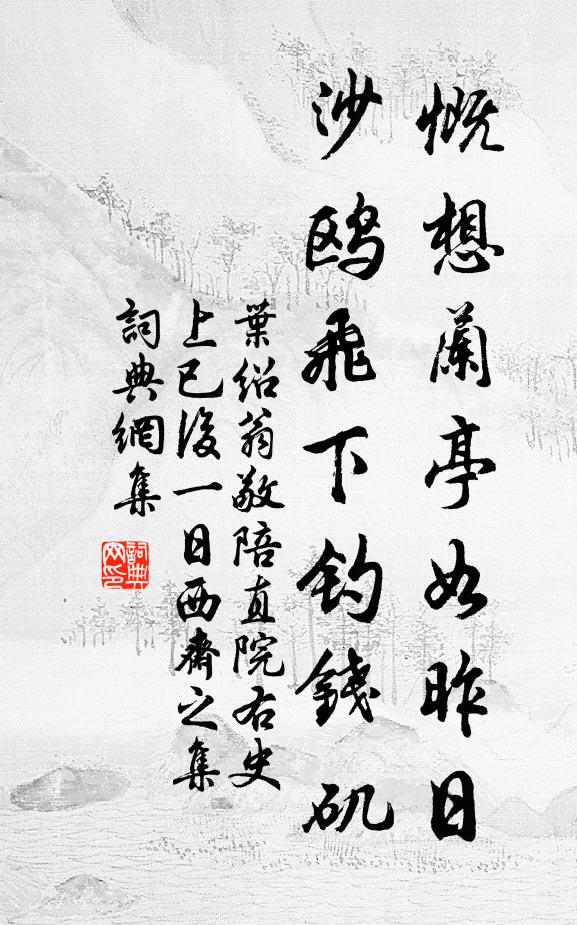 慨想蘭亭如昨日
沙鸥飛下釣錢矶
葉紹翁敬陪直院右史
上巳後一日西齋之集
詞典網集
詞典网印